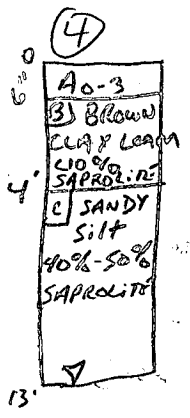 4
0
6"
A 0-3
B BROWN
CLAY LOAM
<10%
SAPROLITE
4'
C SANDY
Silt
40%-50%
SAPROLITE
13'